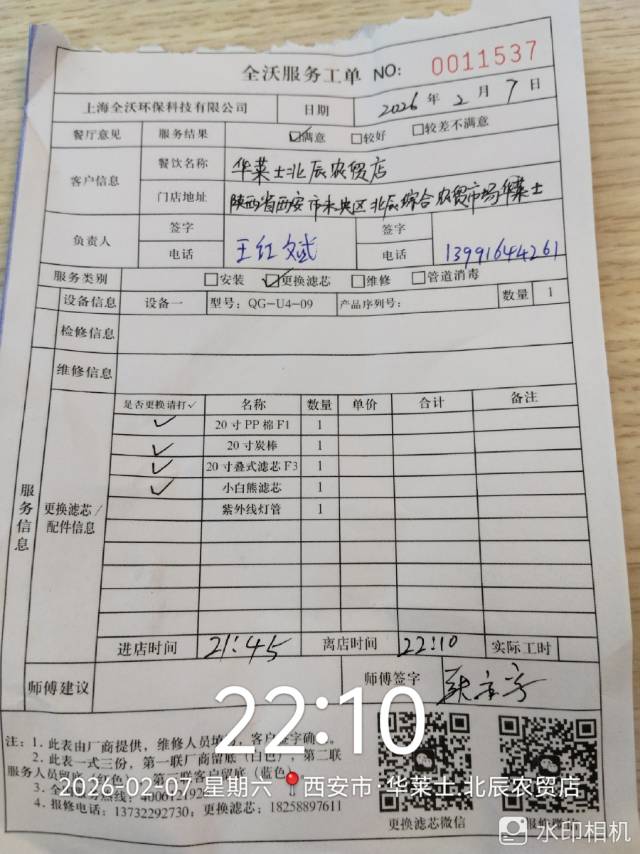 全沃服务工单 NO: 0011537
上海全沃环保科技有限公司 日期 2026 年 2 月 7 日
餐厅意见 服务结果 ☑满意 □较好 □较差不满意
客户信息 餐饮名称 华莱士北辰农贸店
门店地址 陕西省西安市未央区北辰综合农贸市场华莱士
负责人 签字 王红斌 签字
电话 电话 13991644261
服务类别 □安装 ☑更换滤芯 □维修 □管道消毒
设备信息 设备一 型号: QG-U4-09 产品序列号: 数量 1
检修信息
维修信息
服务信息
更换滤芯/
配件信息
是否更换请打✓ 名称 数量 单价 合计 备注
✓ 20寸PP棉F1 1
✓ 20寸炭棒 1
✓ 20寸叠式滤芯F3 1
✓ 小白熊滤芯 1
紫外线灯管 1
进店时间 21:45 离店时间 22:10 实际工时
师傅建议 师傅签字
22:10
注: 1. 此表由厂商提供, 维修人员填 客户签字确
2. 此表一式三份, 第一联厂商留底(白色) 第二联
服务人员留底 第三联客户留底(蓝色)
3. 全 热线:
4. 报修电话: 13732292730; 更换滤芯: 18258897611
2026-02-07 星期六 西安市·华莱士.北辰农贸店
更换滤芯微信 报修微信
水印相机